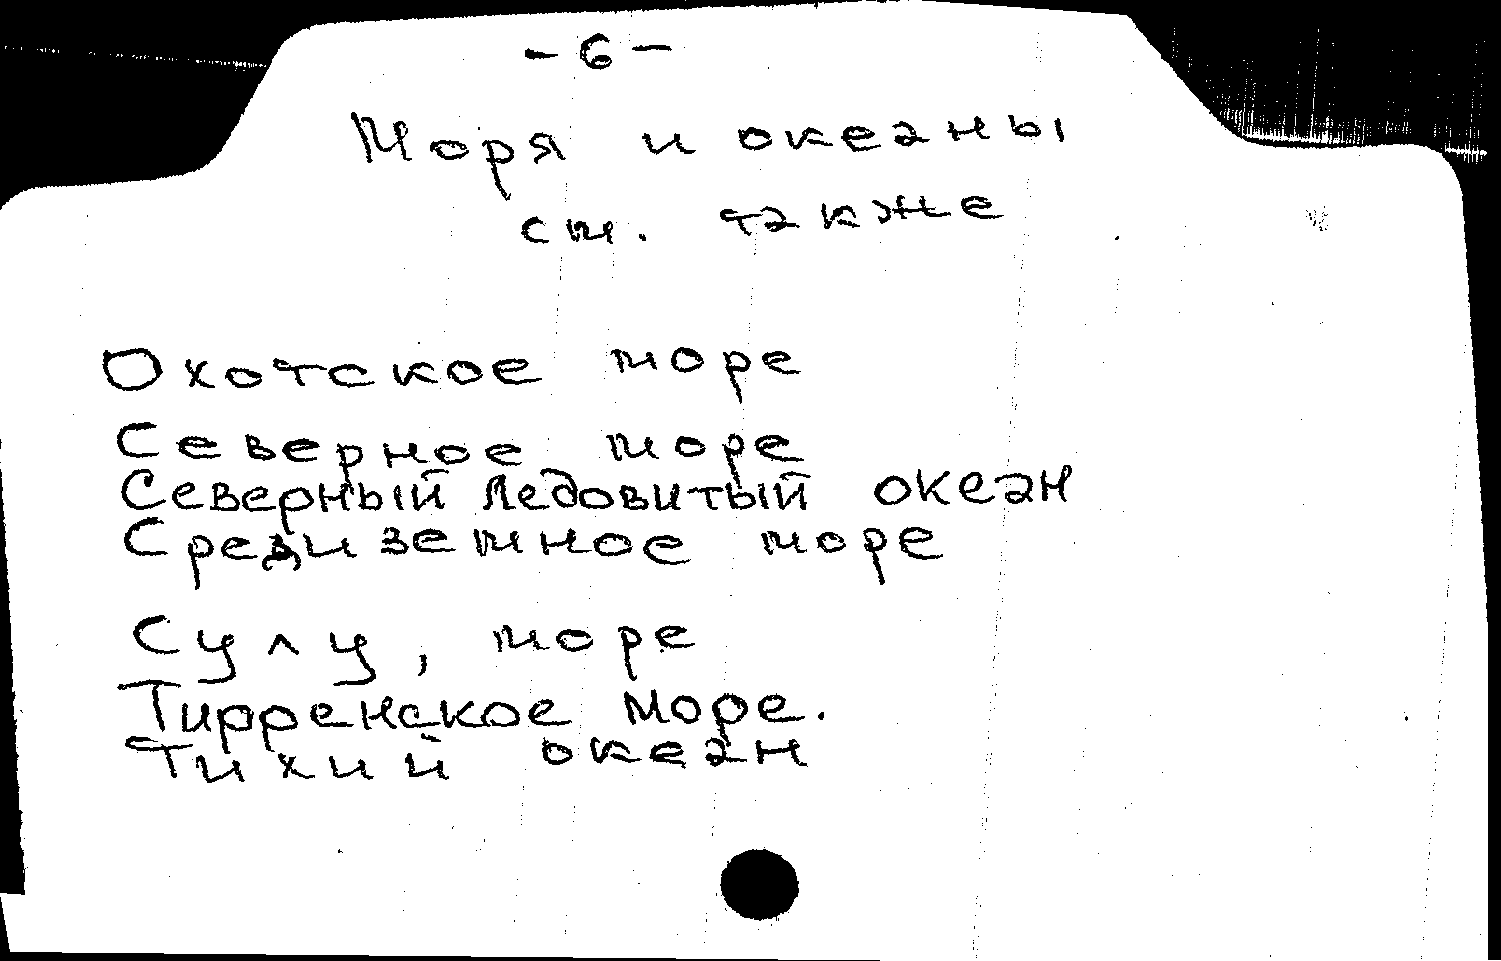 - 6 -
Моря и океаны
см. также
Охотское море
Северное море
Северный Ледовитый океан
Средиземное море
Сулу, море
Тирренское море.
Тихий океан